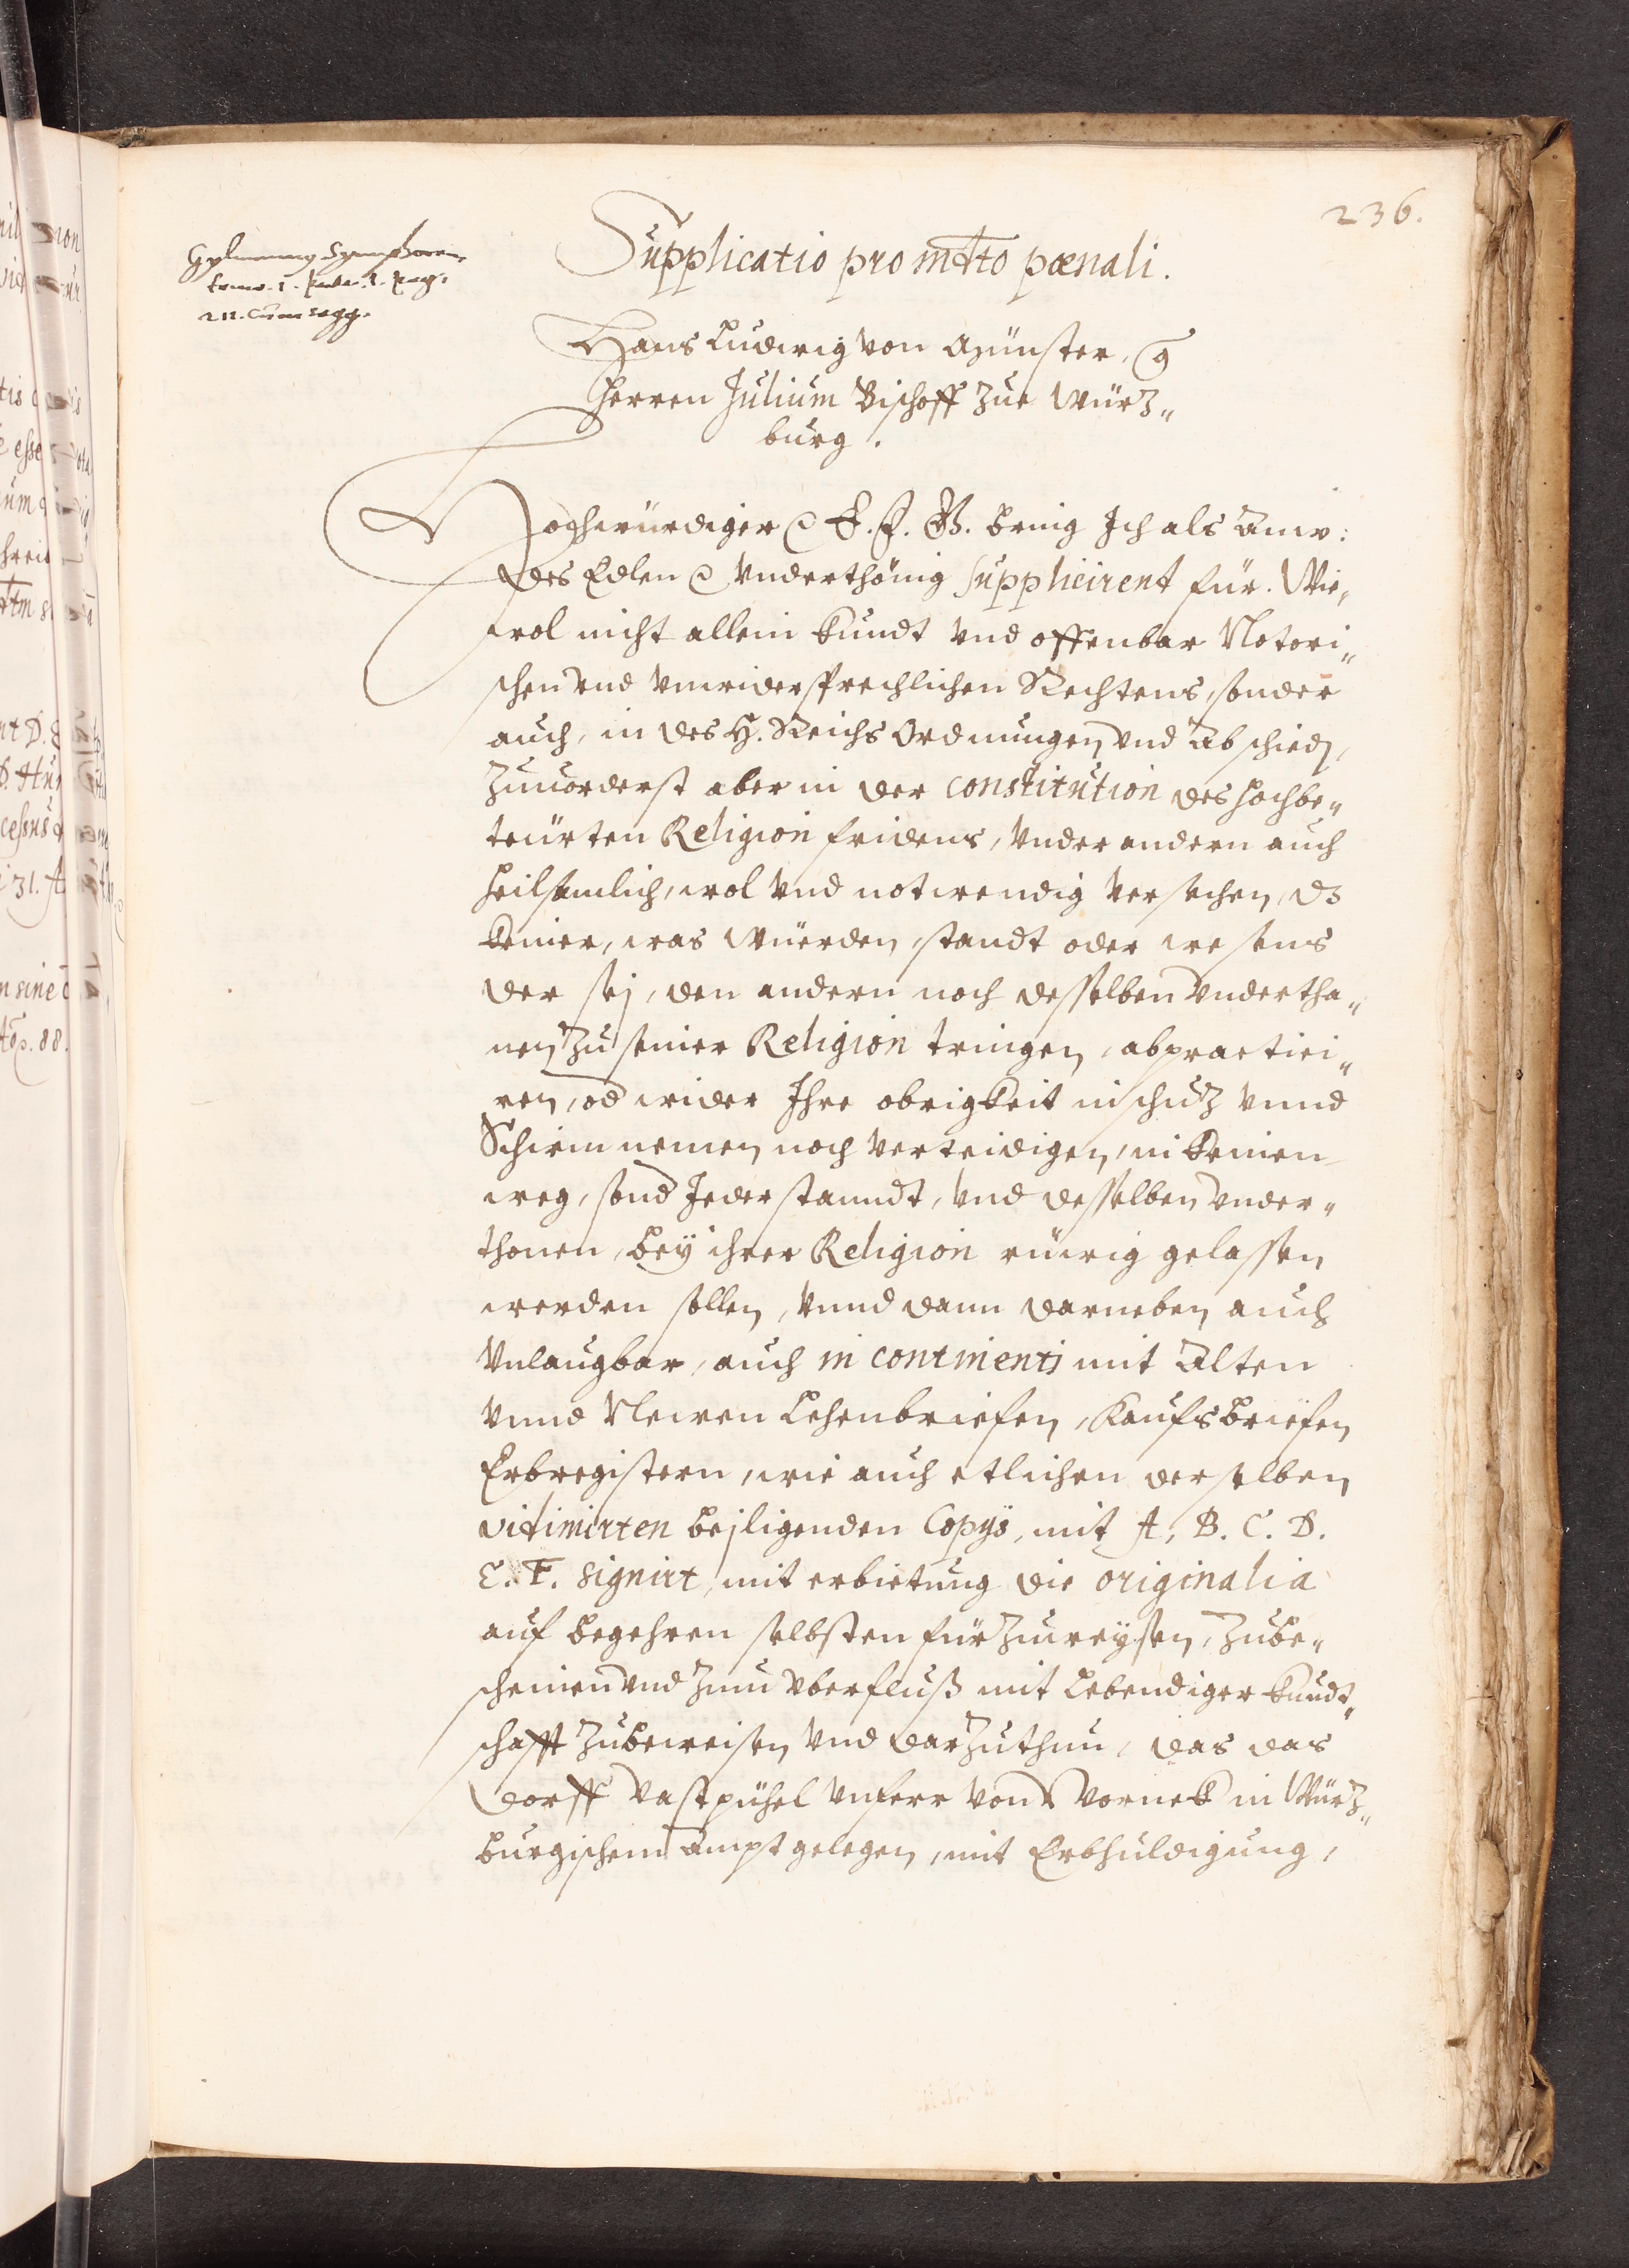 236.
Gylmanny Symphorem.
tomo. 1. parte. 1. pag.
211. cum seqq.
Supplicatio pro mdto pœnali.
Hans Ludwig von Münster, Cg
Herren Julium Bischoff zue Würz„
burg.
Hochwürdiger c E. F. G. bring Ich als Anw:
des Edlen c vnderthönig supplicirent für. Wie,
wol nicht allein kundt vnd offenbar Notori„
schen vnd vnwidersprechlichen Rechtens, sonder
auch, in des H. Reichs Ordnungen vnd Abschied,
zuuorderst aber in der constitution des hochbe„
teürten Religion fridens, vnder andern auch
heilsamlich, wol vnd notwendig versechen, dz
keiner, was würden, standt oder wesens
der sej, den andern noch desselben vndertha„
nen zu seiner Religion tringen, abpractici„
ren, od wider Ihre obrigkeit in schuz vnnd
Schirm nemen noch verteidigen, in keinen
weg, sond Jeder stanndt, vnd desselben vnder„
thonen, bey ihrer Religion rüewig gelassen
werden sollen, vnnd dann darneben auch
vnlaugbar, auch in continenti mit Alten
vnnd Newen Lehenbriefen, Kaufsbriefen
Erbregistern, wie auch etlichen derselben
vidimirten bejligenden Copys, mit A, B. C. D.
E. F. signirt, mit erbietung die originalia
auf begehren selbsten fürzuweysen, zube„
scheinen vnd zum vberfluß mit lebendiger kundt„
schafft zubeweisen vnd darzuthun, das das
Dorff Vastpühel vnferr von Vorneck in Würz„
burgischem Ampt gelegen, mit Erbhuldigung,